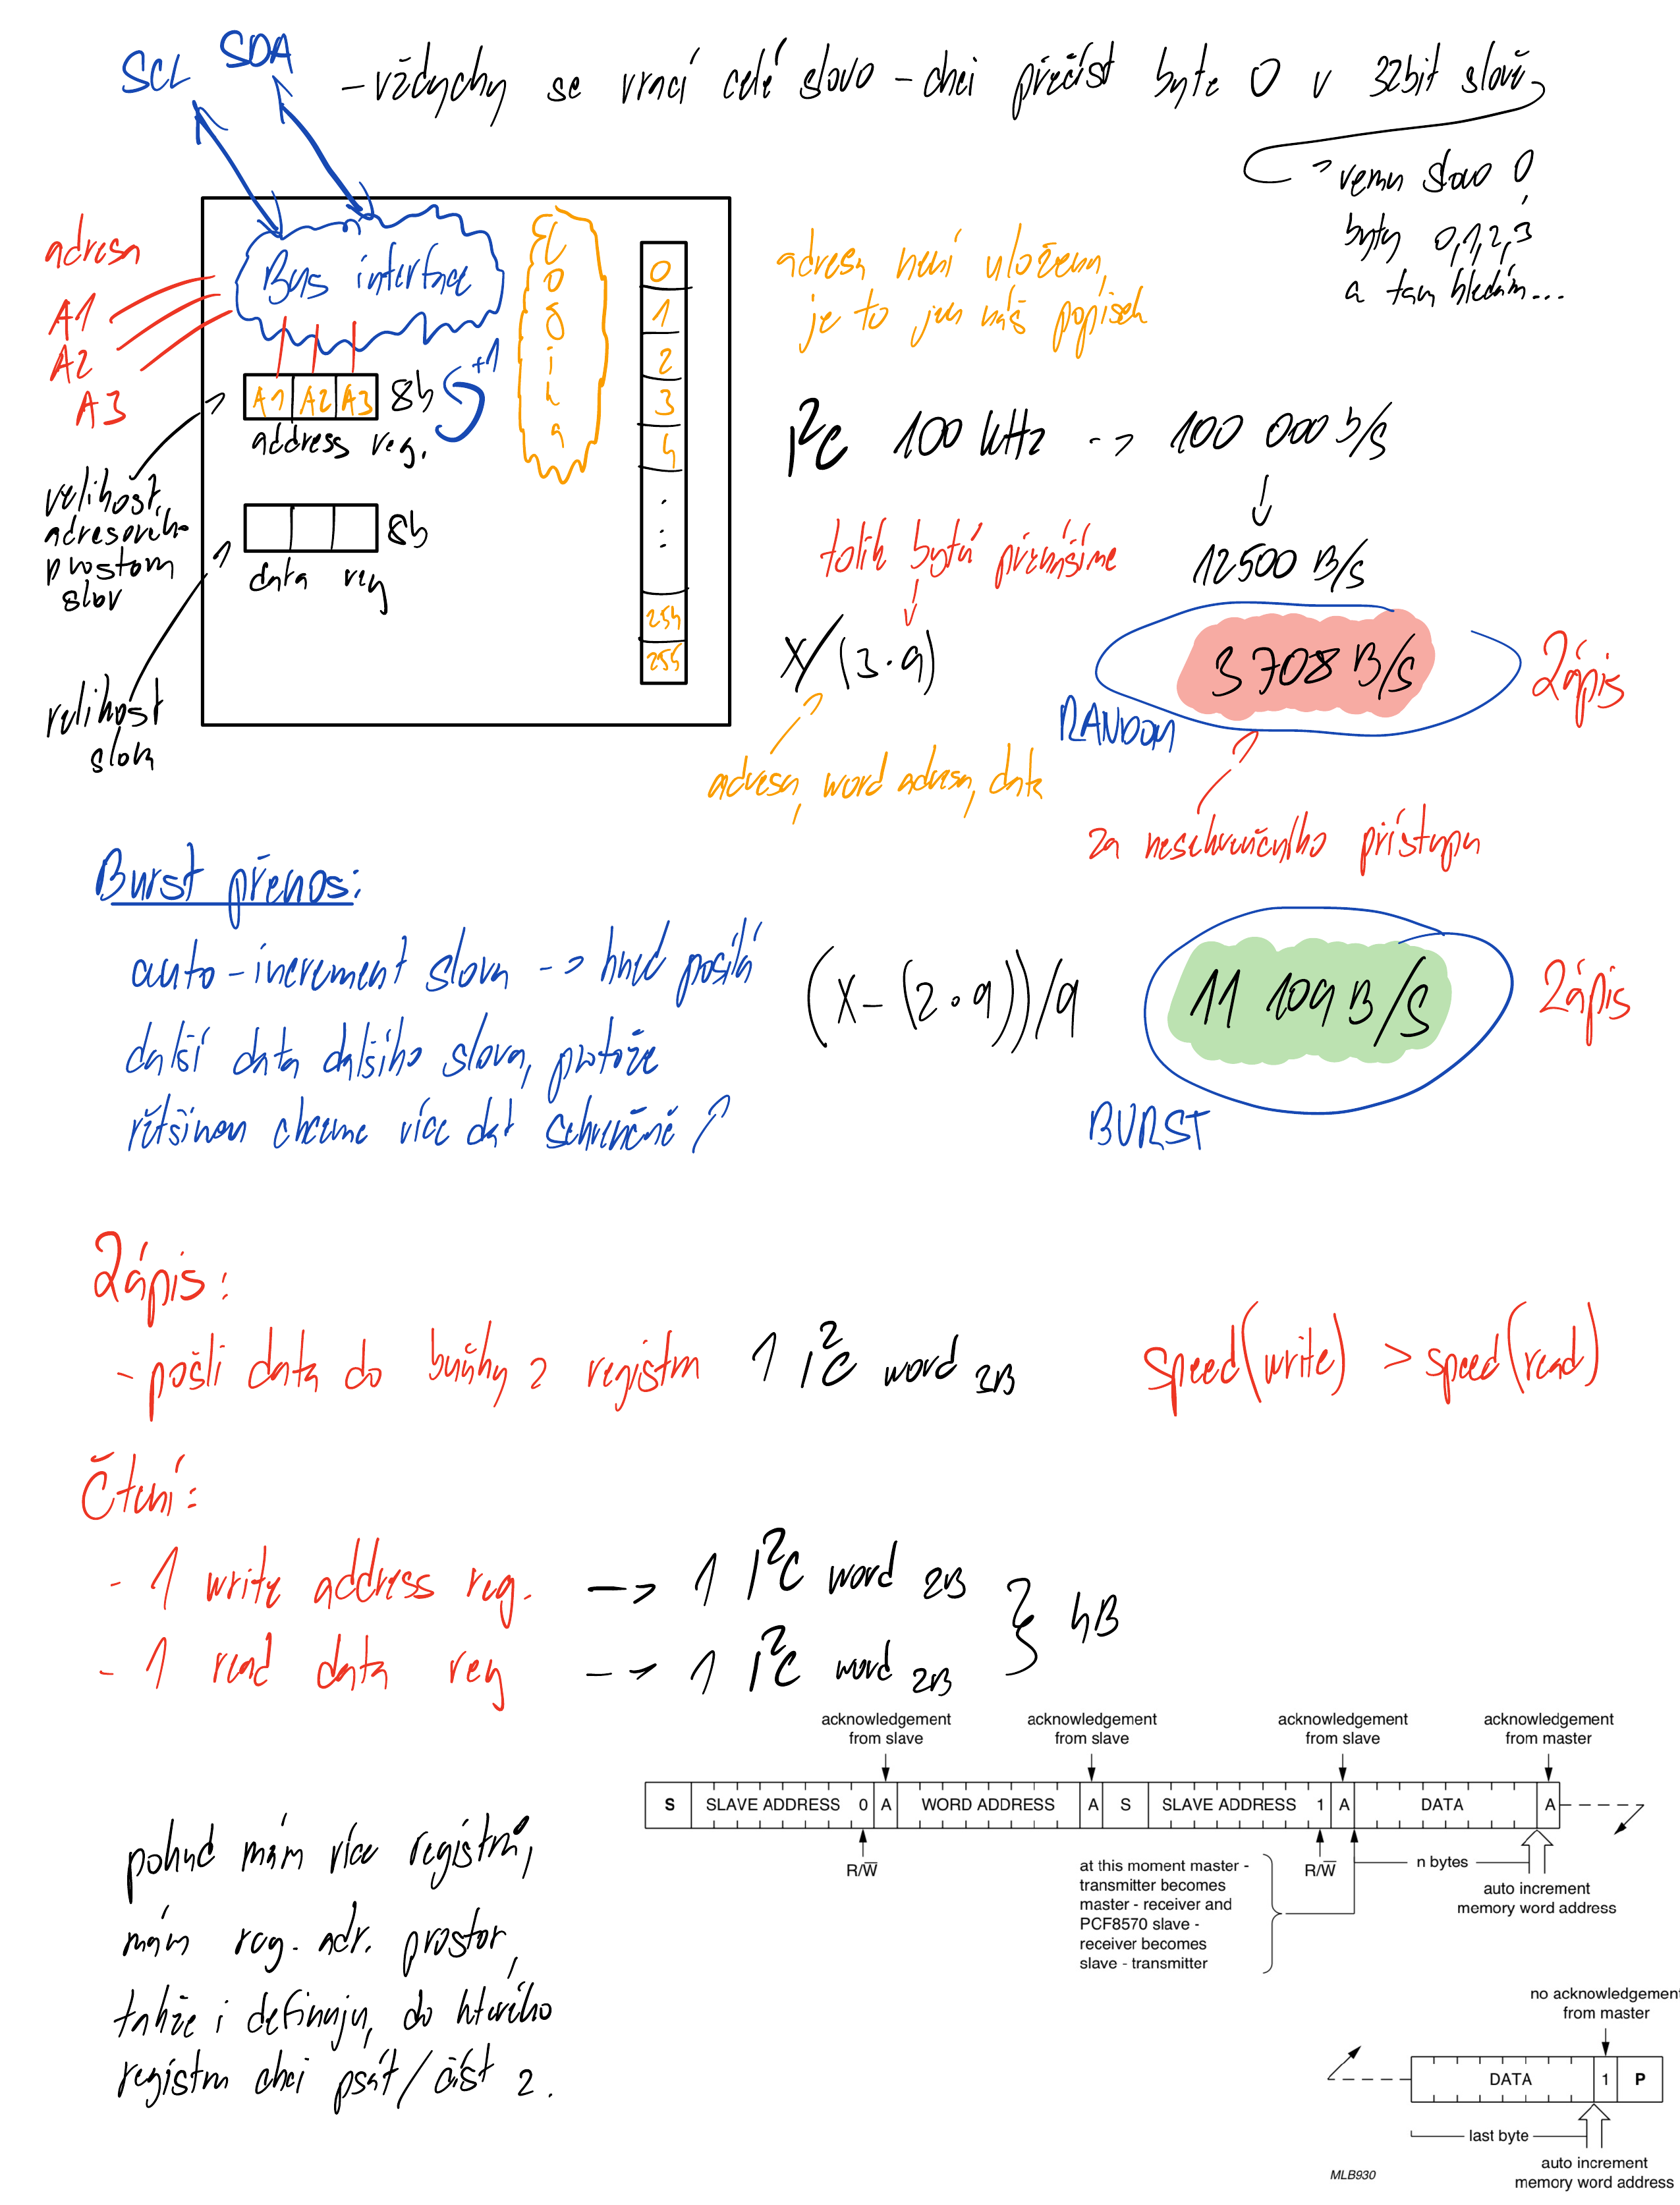 SCL SDA
- vždycky se vrací celé slovo - chci přečíst byte 0 v 32bit slově
vemu slovo 0,
byty 0,1,2,3
a tam hledám...
adresa
A1
A2
A3
Bus interface
+1
A1 A2 A3 8b
address reg.
8b
data reg
Logika
0
1
2
3
4
254
255
velikost
adresového
prostoru
slov
velikost
slova
adresa není uložena,
je to jen náš popisek
I²C 100 kHz -> 100 000 b/s
12500 B/s
tolik bytů přenášíme
X/(3·9)
adresa, word adresa, data
3 708 B/s
RANDOM
Zápis
za nesekvenčního přístupu
Burst přenos:
auto-increment slova -> hned posílá
další data dalšího slova, protože
většinou chceme více dat sekvenčně
(X-(2·9))/9
11 109 B/s
BURST
Zápis
Zápis:
- pošli data do buňky z registru 1 I²C word 3B
speed(write) > speed(read)
Čtení:
- 1 write address reg. --> 1 I²C word 2B
- 1 read data reg --> 1 I²C word 2B
4B
pokud mám více registrů,
mám reg. adr. prostor,
takže i definuju, do kterého
registru chci psát/číst z.
acknowledgement
from slave
acknowledgement
from slave
acknowledgement
from slave
acknowledgement
from master
S SLAVE ADDRESS 0 A WORD ADDRESS A S SLAVE ADDRESS 1 A DATA A
R/W̅
at this moment master -
transmitter becomes
master - receiver and
PCF8570 slave -
receiver becomes
slave - transmitter
R/W̅
n bytes
auto increment
memory word address
no acknowledgement
from master
DATA 1 P
last byte
auto increment
memory word address
MLB930